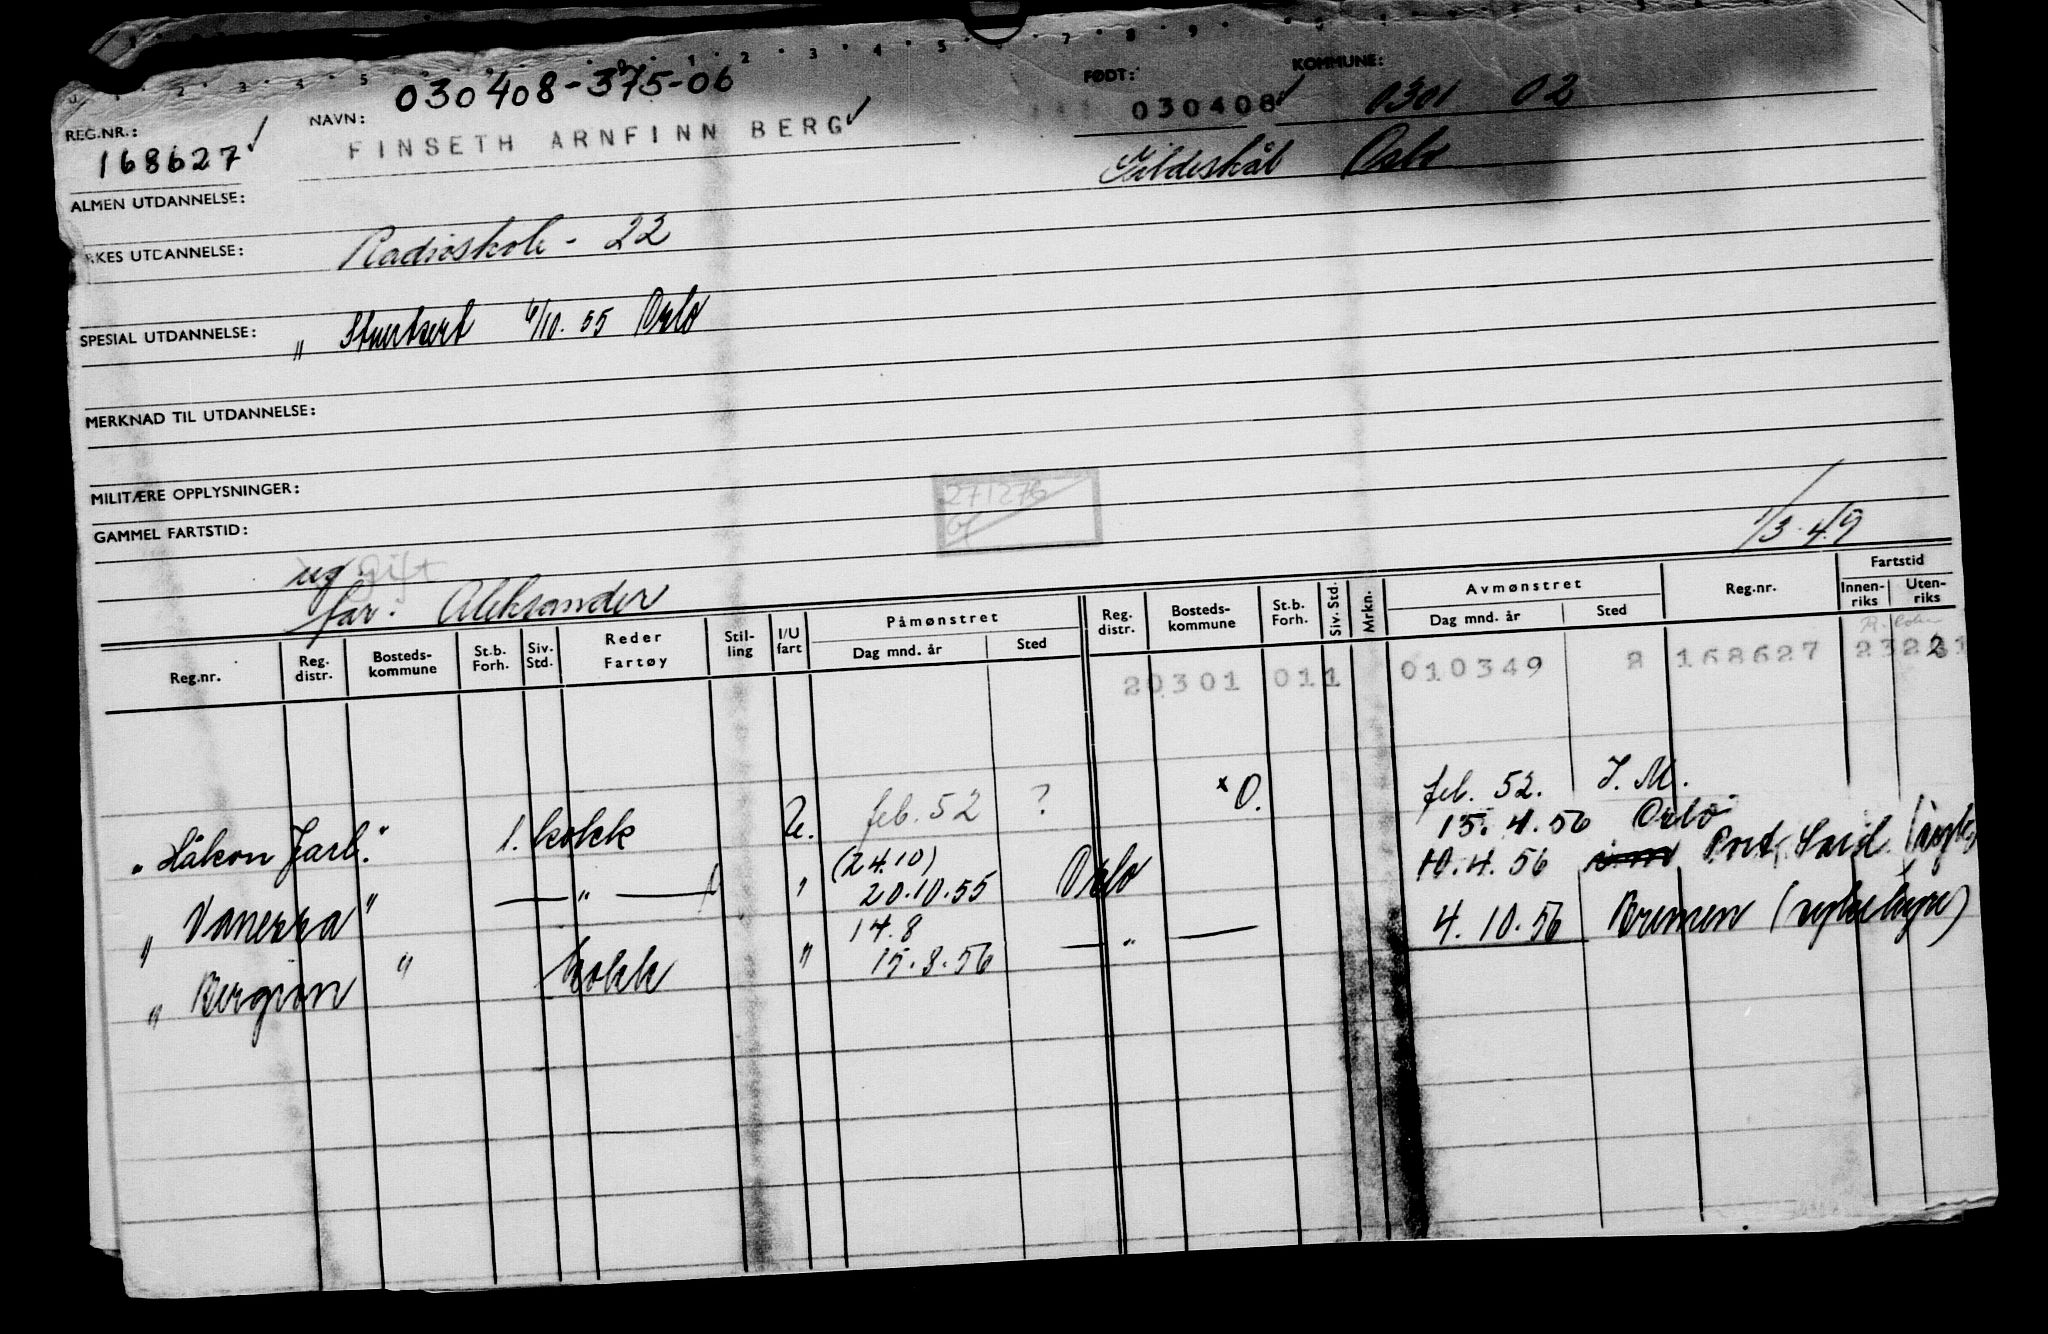 030408-375-06
FØDT: KOMMUNE:
REG.NR.: NAVN: 030408 0301 02
168627 FINSETH ARNFINN BERG
Gildeskål Oslo
ALMEN UTDANNELSE:
RKES UTDANNELSE: Radioskole - 22
SPESIAL UTDANNELSE: " Stuertsert 6/10.55 Oslo
MERKNAD TIL UTDANNELSE:
MILITÆRE OPPLYSNINGER:
271276
GAMMEL FARTSTID: 1/3.49
ug. Gift
far. Aleksander
Reg.nr. Reg. distr. Bosteds-kommune St.b. Forh. Siv. Std. Reder Fartøy Stil-ling I/U fart Påmønstret Dag mnd. år Sted Reg. distr. Bosteds-kommune St.b. Forh. Siv. Std. Mrkn. Avmønstret Dag mnd. år Sted Reg.nr. Fartstid Innen-riks Uten-riks
20301 011 010349 2 168627
"Håkon Jarl" 1. kokk U. feb. 52 ? × O. feb. 52. I. M.
15.4.56 Oslo
" Vanessa " — " — " (24.10) 20.10.55 Oslo 10.4.56 Port Said
" Bergson " kokk " 14.8 15.8.56 — " — 4.10.56 Bremen